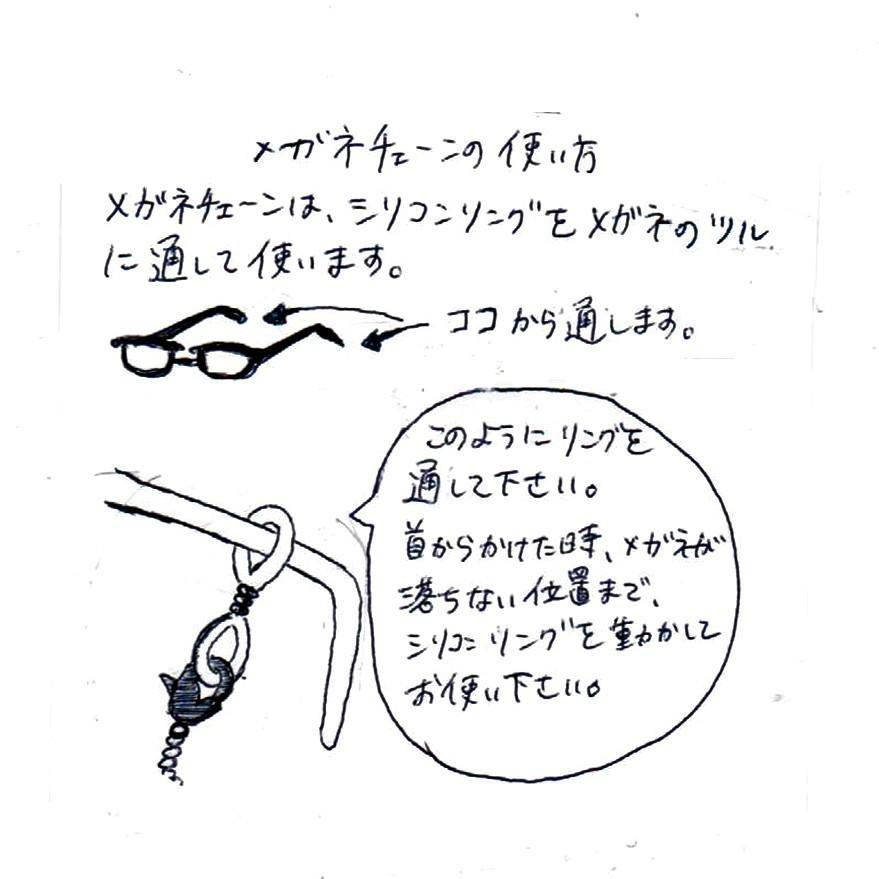 メガネチェーンの使い方
メガネチェーンは、シリコンリングをメガネのツル
に通して使います。
ココから通します。
このようにリングを
通して下さい。
首からかけた時、メガネが
落ちない位置まで、
シリコンリングを動かして
お使い下さい。